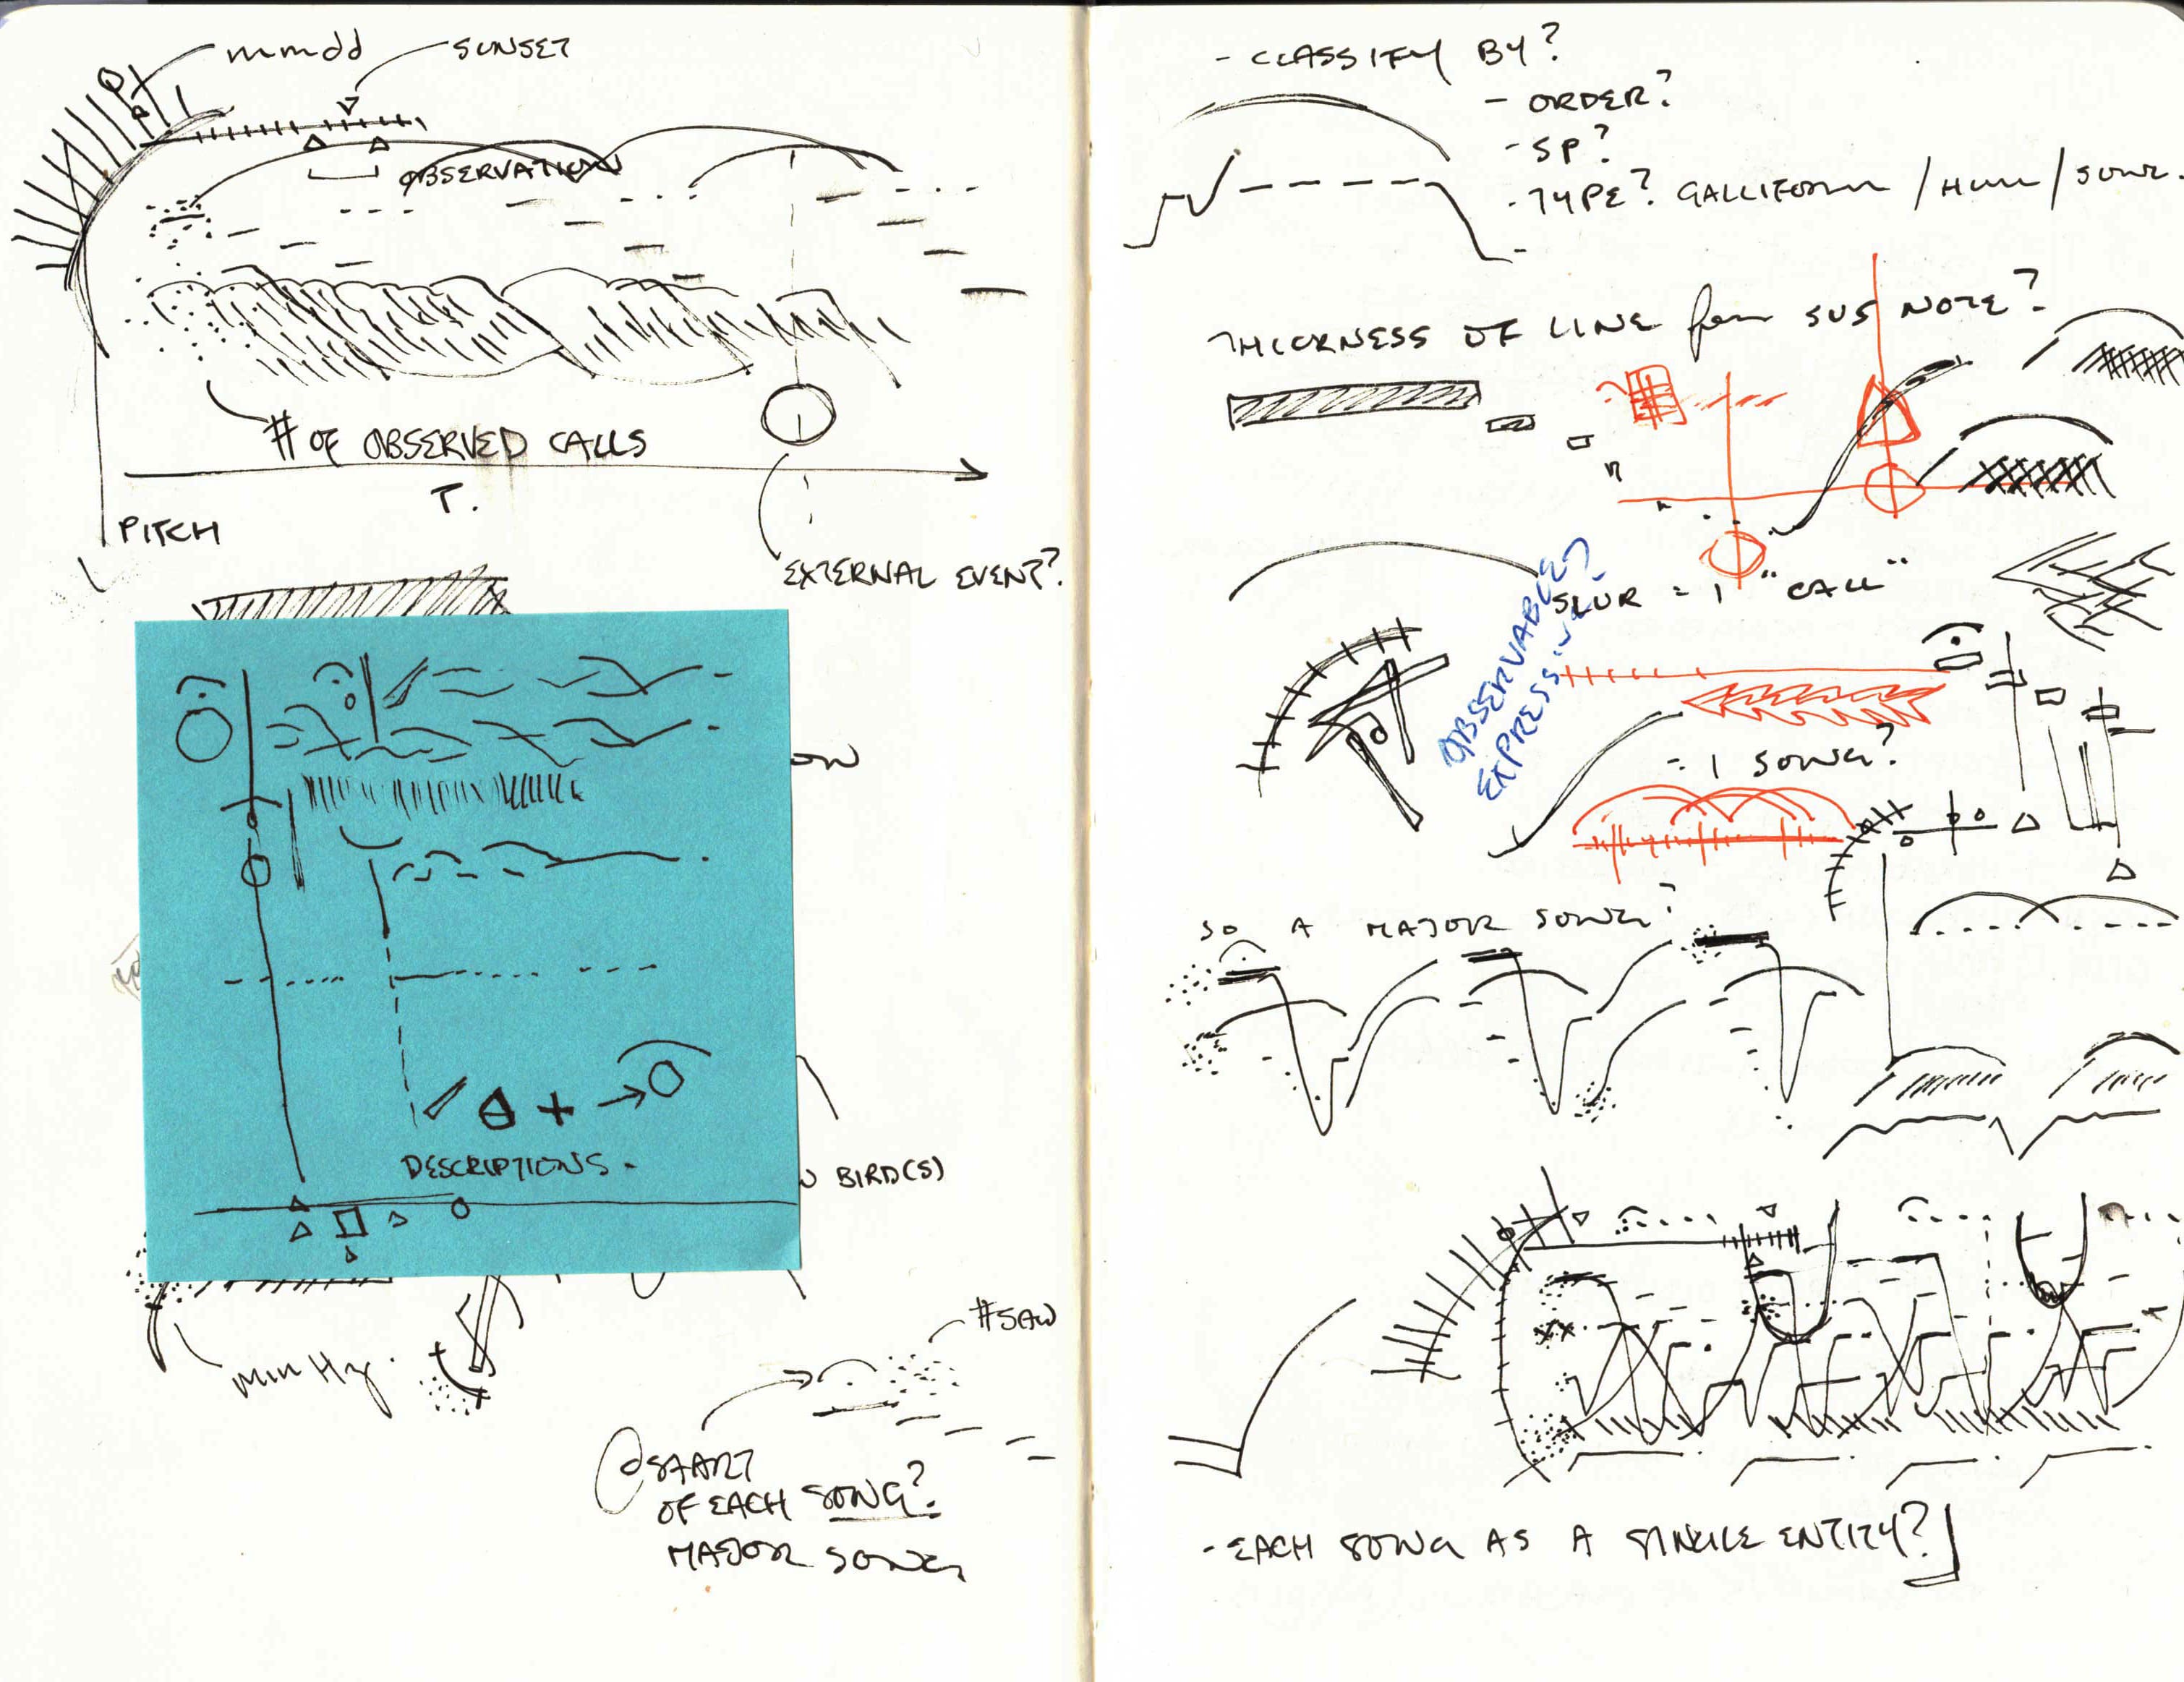 mmdd
SUNSET
OBSERVATION
# OF OBSERVED CALLS
T.
PITCH
EXTERNAL EVENT?
ON
DESCRIPTIONS.
BIRD(S)
MIN Hz.
#SAW
START
OF EACH SONG?
MAJOR SONG
- CLASSIFY BY?
- ORDER?
- SP?
- TYPE? GALLIFORM / HUM / SONG.
THICKNESS OF LINE for SUS NOTE?
SLUR = 1 "CALL"
OBSERVABLE?
EXPRESSIVE?
= 1 SONG?
SO A MAJOR SONG?
- EACH SONG AS A SINGLE ENTITY?